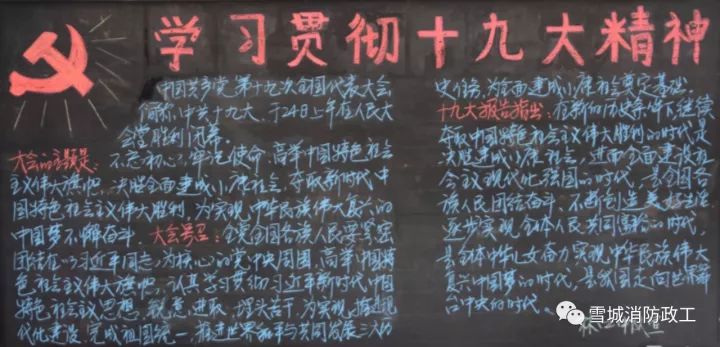 学习贯彻十九大精神
中国共产党第十九次全国代表大会
简称中共十九大，于24日上午在人民大
会堂胜利闭幕。
大会的主题是：不忘初心，牢记使命，高举中国特色社会
主义伟大旗帜，决胜全面建成小康社会，夺取新时代中
国特色社会主义伟大胜利，为实现中华民族伟大复兴的
中国梦不懈奋斗。大会号召：全党全国各族人民要紧密
团结在以习近平同志为核心的党中央周围，高举中国特
色社会主义伟大旗帜，认真学习贯彻习近平新时代中国
特色社会主义思想，锐意进取，埋头苦干，为实现推进现
代化建设、完成祖国统一、推进世界和平与共同发展三大历
史任务，为全面建成小康社会奠定基础。
十九大报告指出：在新的历史条件下继续
夺取中国特色社会主义伟大胜利的时代，是
决胜建成小康社会，进而全面建设社
会主义现代化强国的时代，是全国各
族人民团结奋斗、不断创造美好生活
逐步实现全体人民共同富裕的时代，
是全体中华儿女奋力实现中华民族伟大
复兴中国梦的时代，是我国走向世界舞
台中央的时代。
雪城消防政工